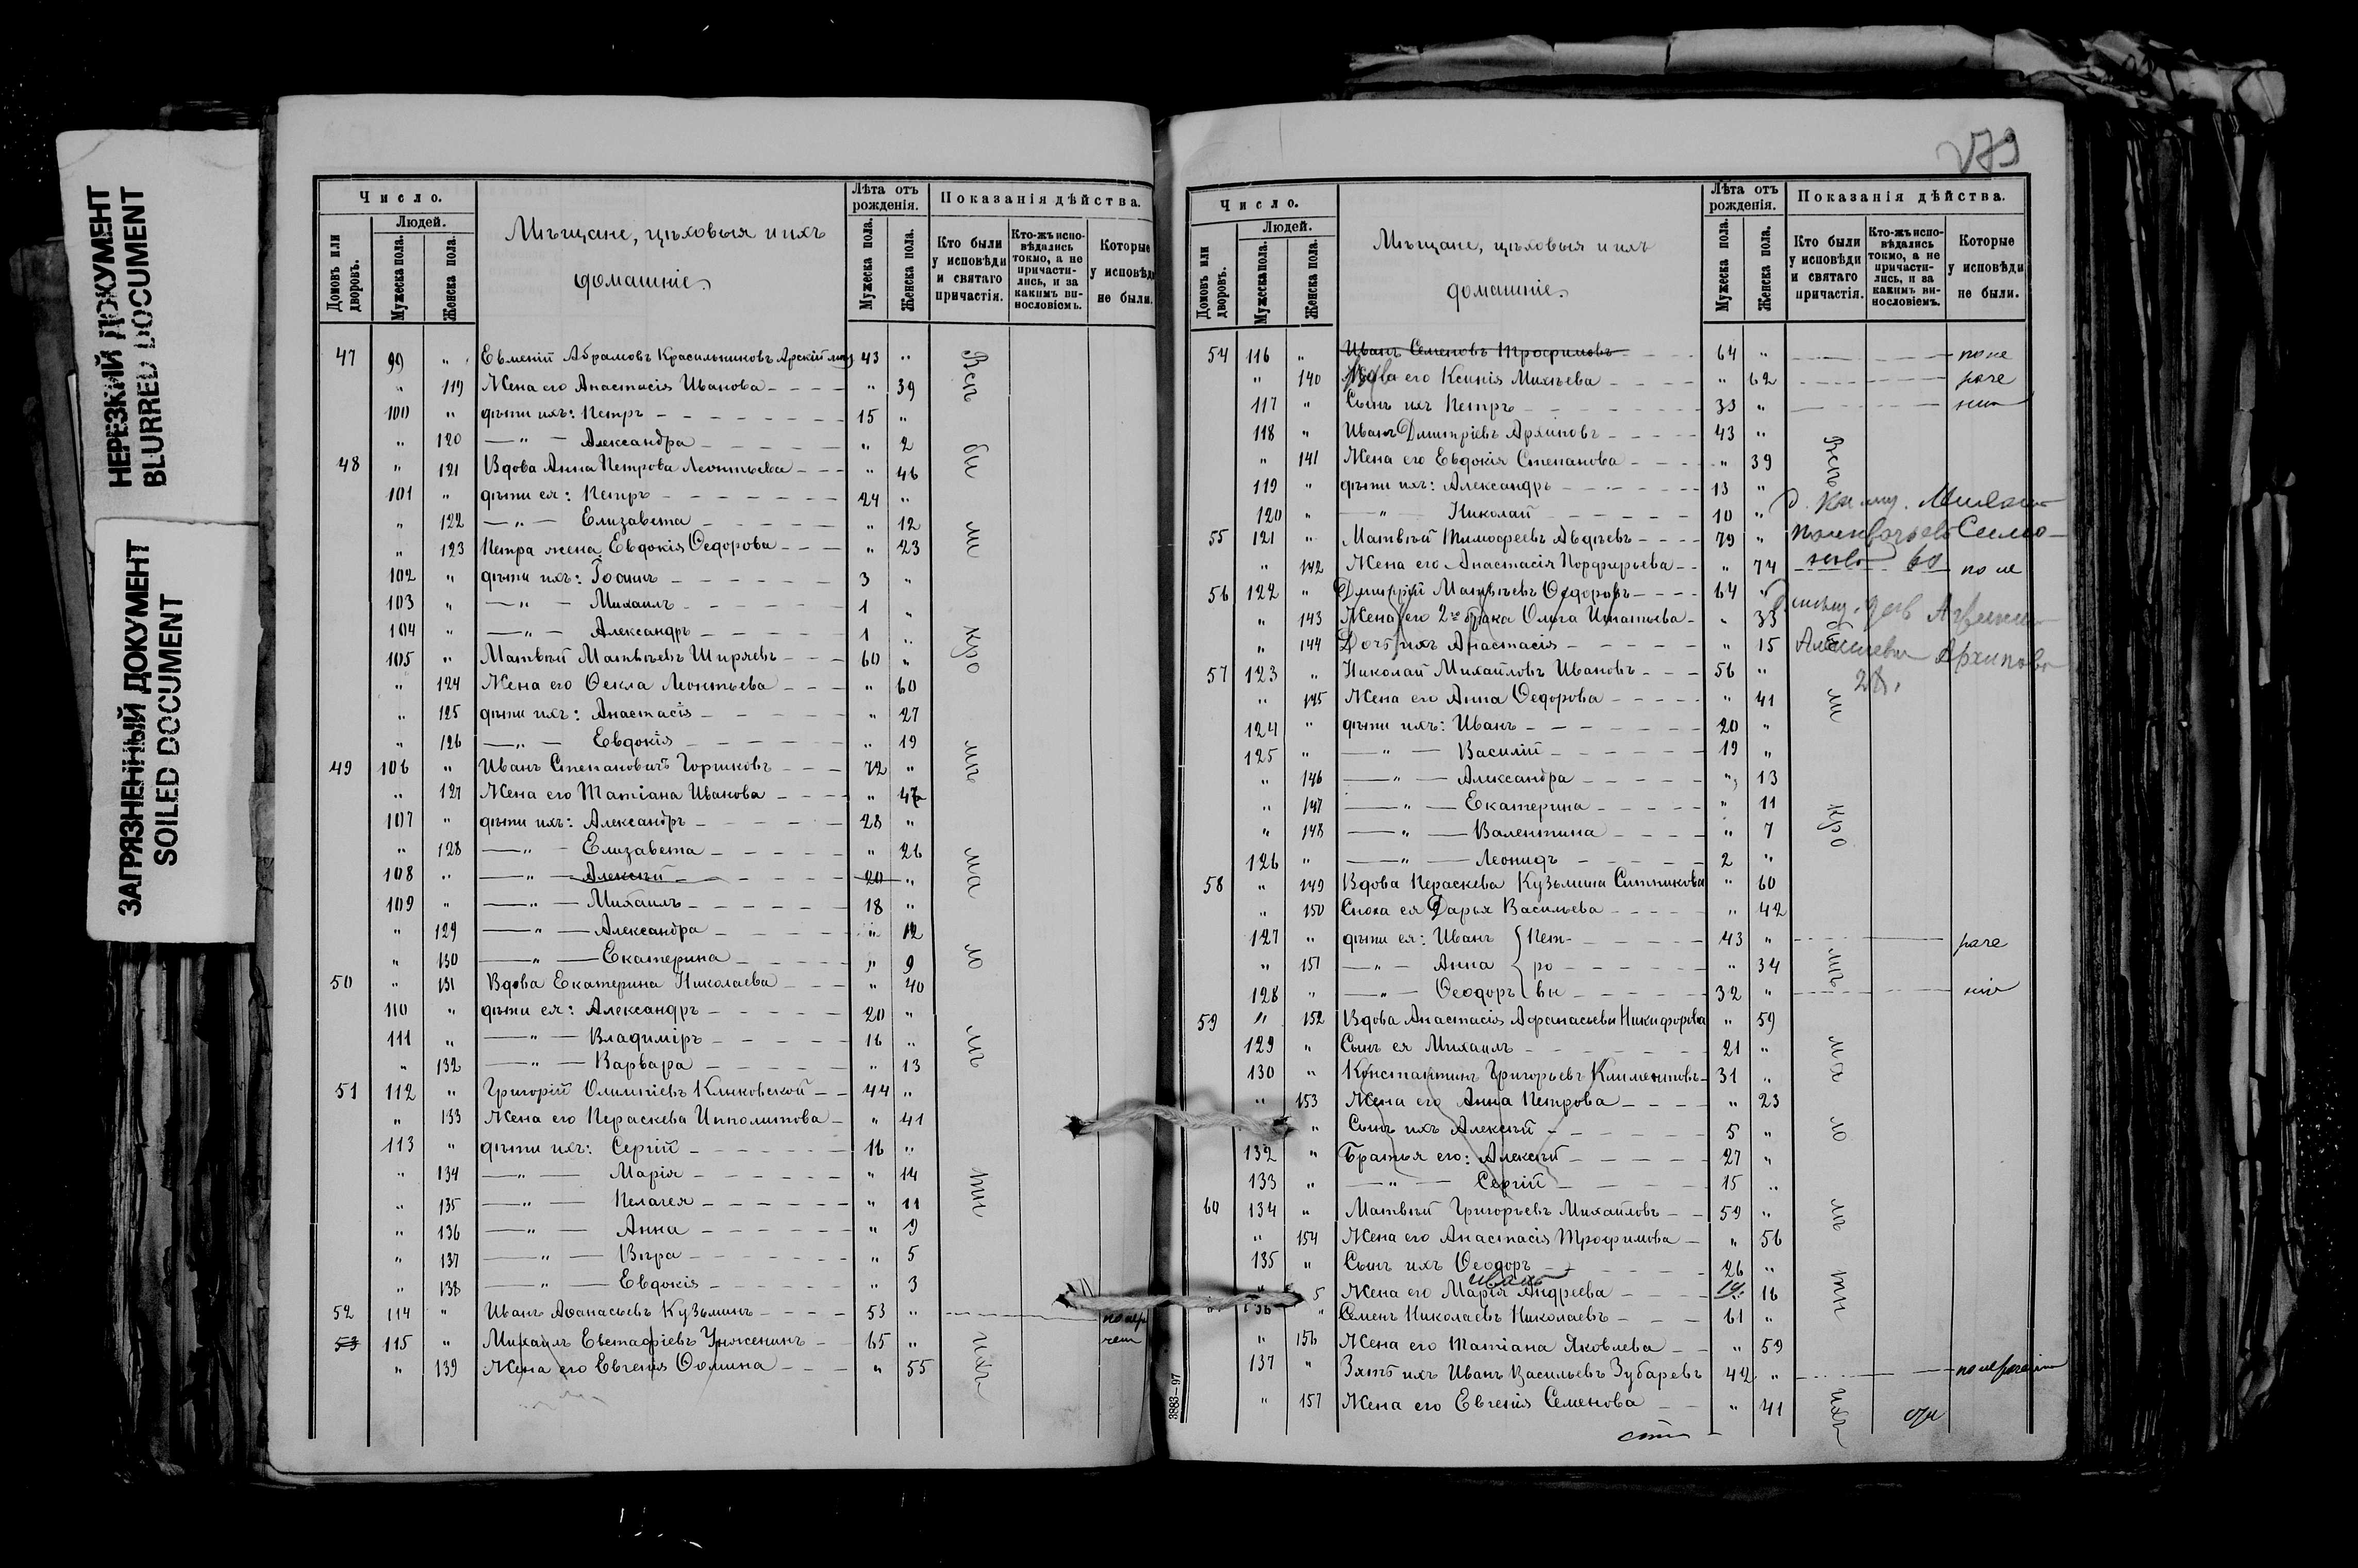 НЕРЕЗКИЙ ДОКУМЕНТ
BLURRED DOCUMENT
ЗАГРЯЗНЕННЫЙ ДОКУМЕНТ
SOILED DOCUMENT
Число.
Людей.
Домовъ или дворовъ.
Мужеска пола.
Женска пола.
Мѣщане, цѣховыя и ихъ
домашніе.
Лѣта отъ рожденія.
Мужеска пола.
Женска пола.
Показанія дѣйства.
Кто были у исповѣди и святаго причастія.
Кто-жъ исповѣдались токмо, а не причастились, и за какимъ виновословіемъ.
Которые у исповѣди не были.
47 99 " Евменій Абрамовъ Красильниковъ Арскій мѣщ 43 "
" 119 Жена его Анастасія Иванова " 39
100 " дѣти ихъ: Петръ 15 "
" 120 —"— Александра " 2
48 " 121 Вдова Анна Петрова Леонтьева " 46
101 " дѣти ея: Петръ 24 "
" 122 —"— Елизавета " 12
" 123 Петра жена Евдокія Ѳедорова " 23
102 " дѣти ихъ: Іоаннъ 3 "
103 " —"— Михаилъ 1 "
104 " —"— Александръ 1 "
105 " Матвѣй Матвѣевъ Ширяевъ 60 "
" 124 Жена его Ѳекла Леонтьева " 60
" 125 дѣти ихъ: Анастасія " 27
" 126 —"— Евдокія " 19
49 106 " Иванъ Степановичъ Горшковъ 72 "
" 127 Жена его Татіана Иванова " 47
107 " дѣти ихъ: Александръ 28 "
" 128 —"— Елизавета " 26
108 " —"— Алексѣй 20 "
109 " —"— Михаилъ 18 "
" 129 —"— Александра " 12
" 130 —"— Екатерина " 9
50 " 131 Вдова Екатерина Николаева " 40
110 " дѣти ея: Александръ 20 "
111 " —"— Владиміръ 16 "
" 132 —"— Варвара " 13
51 112 " Григорій Олимпіевъ Клыковской 44 "
" 133 Жена его Пераскева Ипполитова " 41
113 " дѣти ихъ: Сергій 16 "
" 134 —"— Марія " 14
" 135 —"— Пелагея " 11
" 136 —"— Анна " 9
" 137 —"— Вѣра " 5
" 138 —"— Евдокія " 3
52 114 " Иванъ Аѳанасьевъ Кузьминъ 53 "
53 115 " Михаилъ Евстафіевъ Унженинъ 65 "
" 139 Жена его Евгенія Ѳомина " 55
Всѣ
бы
ли
кро
мѣ
ма
ло
лѣ
тн
ихъ
179
Число.
Людей.
Домовъ или дворовъ.
Мужеска пола.
Женска пола.
Мѣщане, цѣховыя и ихъ
домашніе.
Лѣта отъ рожденія.
Мужеска пола.
Женска пола.
Показанія дѣйства.
Кто были у исповѣди и святаго причастія.
Кто-жъ исповѣдались токмо, а не причастились, и за какимъ виновословіемъ.
Которые у исповѣди не были.
54 116 " Иванъ Семеновъ Трофимовъ 64 " по не
" 140 Вдова его Ксенія Михѣева " 62 раче
117 " Сынъ ихъ Петръ 33 " нію
118 " Иванъ Дмитріевъ Архиповъ 43 "
" 141 Жена его Евдокія Степанова " 39
119 " дѣти ихъ: Александръ 13 "
120 " —"— Николай 10 "
55 121 " Матвѣй Тимофеевъ Авдѣевъ 79 "
" 142 Жена его Анастасія Порфирьева " 74 60 по не
56 122 " Дмитрій Матвѣевъ Ѳедоровъ 64 "
" 143 Жена его 2го брака Ольга Игнатьева " 33
" 144 Дочь ихъ Анастасія " 15
Архипова
28.
57 123 " Николай Михайловъ Ивановъ 56 "
" 145 Жена его Анна Ѳедорова " 41
124 " дѣти ихъ: Иванъ 20 "
125 " —"— Василій 19 "
" 146 —"— Александра " 13
" 147 —"— Екатерина " 11
" 148 —"— Валентина " 7
126 " —"— Леонидъ 2 "
58 " 149 Вдова Пераскева Кузьмина Ситникова " 60
" 150 Сноха ея Дарья Васильева " 42
127 " дѣти ея: Иванъ { Пет- 43 " раче
" 151 —"— Анна { ро " 34
128 " —"— Ѳеодоръ { вы 32 " нію
59 " 152 Вдова Анастасія Аѳанасьева Никифорова " 59
129 " Сынъ ея Михаилъ 21 "
130 " Константинъ Григорьевъ Климентовъ 31 "
" 153 Жена его Анна Петрова " 23
" Сынъ ихъ Алексѣй 5 "
132 " Братья его: Алексѣй 27 "
133 " —"— Сергій 15 "
60 134 " Матвѣй Григорьевъ Михайловъ 59 "
" 154 Жена его Анастасія Трофимова " 56
135 " Сынъ ихъ Ѳеодоръ 26 "
5 Жена его Марія Андреева 16
136 " Семенъ Николаевъ Николаевъ 61 "
" 156 Жена его Татіана Яковлева " 59
137 " Зять ихъ Иванъ Васильевъ Зубаревъ 42 " по нераченію
" 157 Жена его Евгенія Семенова " 41
Всѣ
бы
ли
кро
мѣ
ма
ло
лѣ
тн
ихъ
3883—97